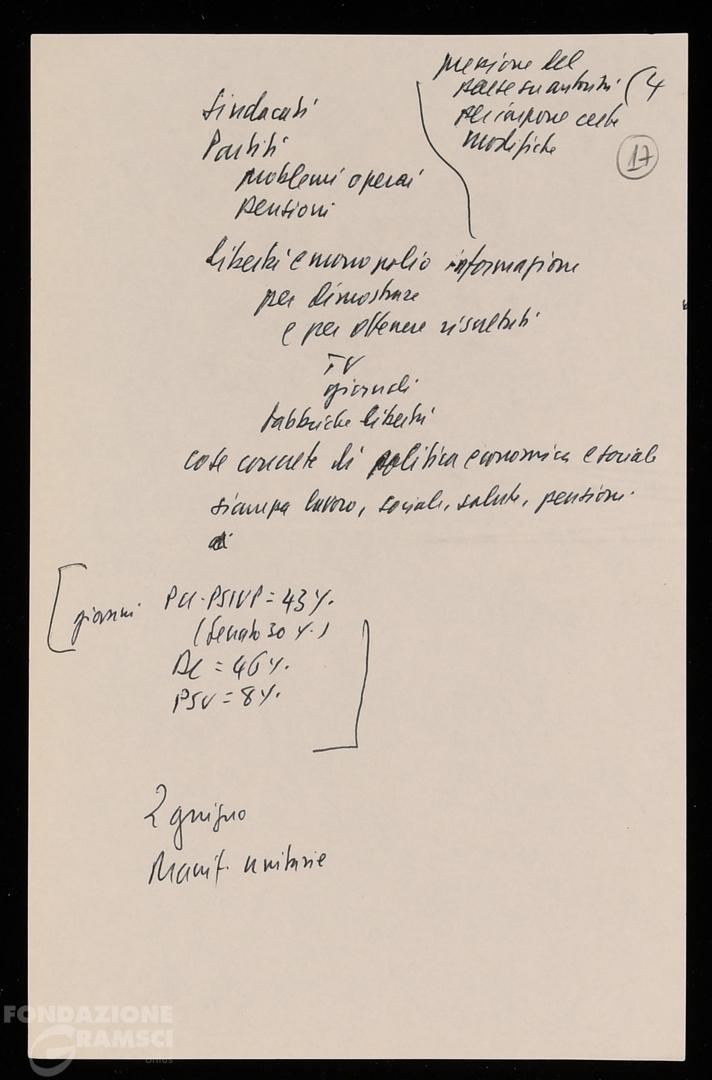 pressione del
paese su
per imporre certe
modifiche
(4
17
Sindacati
Partiti
problemi operai
pensioni
libertà e monopolio informazione
per dimostrare
e per ottenere risultati
TV
giornali
fabbriche libertà
cose concrete di politica economica e sociale
stampa lavoro, sociale, salute, pensioni
giovani
PCI-PSIUP = 43%.
(Senato 30%.)
DC = 46%.
PSU = 8%.
2 giugno
Manif. unitarie
FONDAZIONE
GRAMSCI
onlus